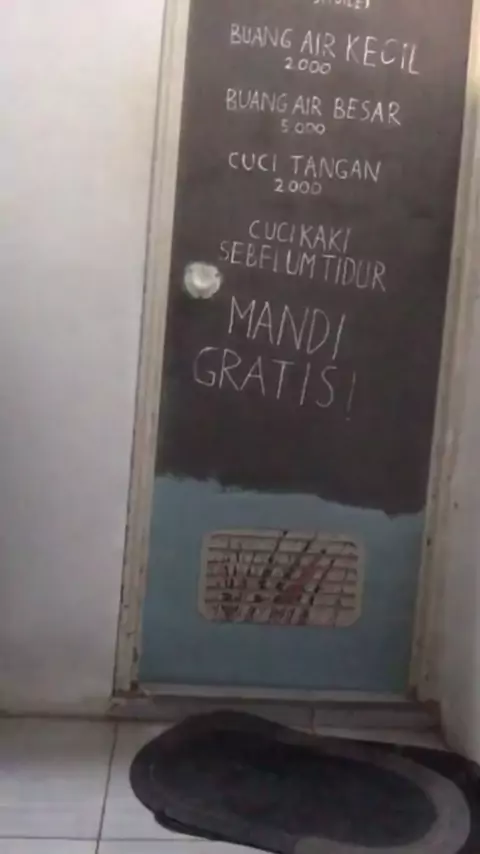 BUANG AIR KECIL
2.000
BUANG AIR BESAR
5.000
CUCI TANGAN
2.000
CUCI KAKI
SEBELUM TIDUR
MANDI
GRATIS!